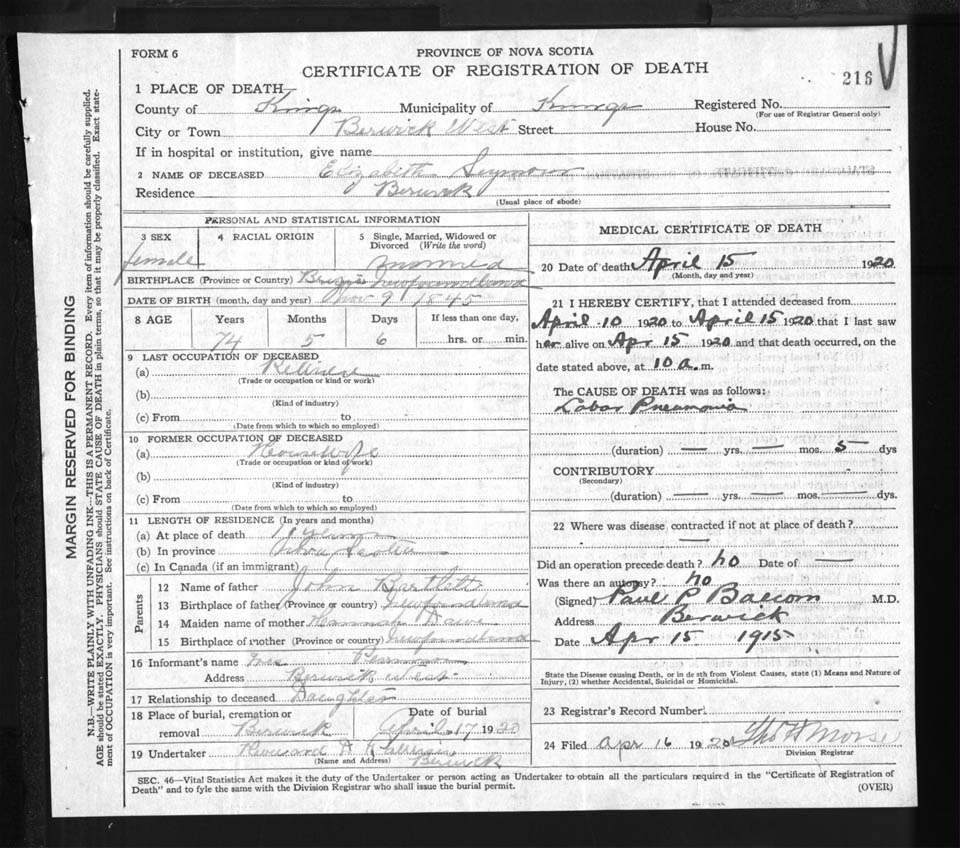 FORM 6
PROVINCE OF NOVA SCOTIA
CERTIFICATE OF REGISTRATION OF DEATH
216
1 PLACE OF DEATH
County of Kings Municipality of Kings Registered No.
(For use of Registrar General only)
City or Town Berwick West Street House No.
If in hospital or institution, give name
2 NAME OF DECEASED Elizabeth Seymour
Residence Berwick
(Usual place of abode)
PERSONAL AND STATISTICAL INFORMATION
3 SEX 4 RACIAL ORIGIN 5 Single, Married, Widowed or Divorced (Write the word)
female
BIRTHPLACE (Province or Country) Brigus Newfoundland
DATE OF BIRTH (month, day and year) Nov 9 1845
8 AGE Years Months Days If less than one day,
74 5 6 hrs. or min.
9 LAST OCCUPATION OF DECEASED
(a)
(Trade or occupation or kind or work)
(b)
(Kind of industry)
(c) From to
(Date from which to which so employed)
10 FORMER OCCUPATION OF DECEASED
(a) Housewife
(Trade or occupation or kind of work)
(b)
(Kind of industry)
(c) From to
(Date from which to which so employed)
11 LENGTH OF RESIDENCE (In years and months)
(a) At place of death years
(b) In province Nova Scotia
(c) In Canada (if an immigrant)
Parents
12 Name of father John Bartlett
13 Birthplace of father (Province or country) Newfoundland
14 Maiden name of mother Hannah Dawe
15 Birthplace of mother (Province or country) Newfoundland
16 Informant's name Mrs
Address Berwick West
17 Relationship to deceased Daughter
18 Place of burial, cremation or removal Berwick Date of burial April 17 1920
19 Undertaker
(Name and Address) Berwick
MEDICAL CERTIFICATE OF DEATH
20 Date of death April 15 1920
(Month, day and year)
21 I HEREBY CERTIFY, that I attended deceased from
April 10 1920 to April 15 1920 that I last saw
her alive on Apr 15 1920 and that death occurred, on the
date stated above, at 10 a. m.
The CAUSE OF DEATH was as follows:
Lobar Pneumonia
(duration) — yrs. — mos. 5 dys
CONTRIBUTORY
(Secondary)
(duration) — yrs. — mos. — dys.
22 Where was disease contracted if not at place of death?
—
Did an operation precede death? no Date of —
Was there an autopsy? no
(Signed) Paul P Balcom M.D.
Address Berwick
Date Apr 15 1915
State the Disease causing Death, or in death from Violent Causes, state (1) Means and Nature of
Injury, (2) whether Accidental, Suicidal or Homicidal.
23 Registrar's Record Number
24 Filed Apr 16 1920 Morse
Division Registrar
SEC. 46—Vital Statistics Act makes it the duty of the Undertaker or person acting as Undertaker to obtain all the particulars required in the "Certificate of Registration of
Death" and to fyle the same with the Division Registrar who shall issue the burial permit.
(OVER)
MARGIN RESERVED FOR BINDING
N.B.—WRITE PLAINLY WITH UNFADING INK—THIS IS A PERMANENT RECORD. Every item of information should be carefully supplied.
AGE should be stated EXACTLY. PHYSICIANS should STATE CAUSE OF DEATH in plain terms, so that it may be properly classified. Exact state-
ment of OCCUPATION is very important. See instructions on back of Certificate.